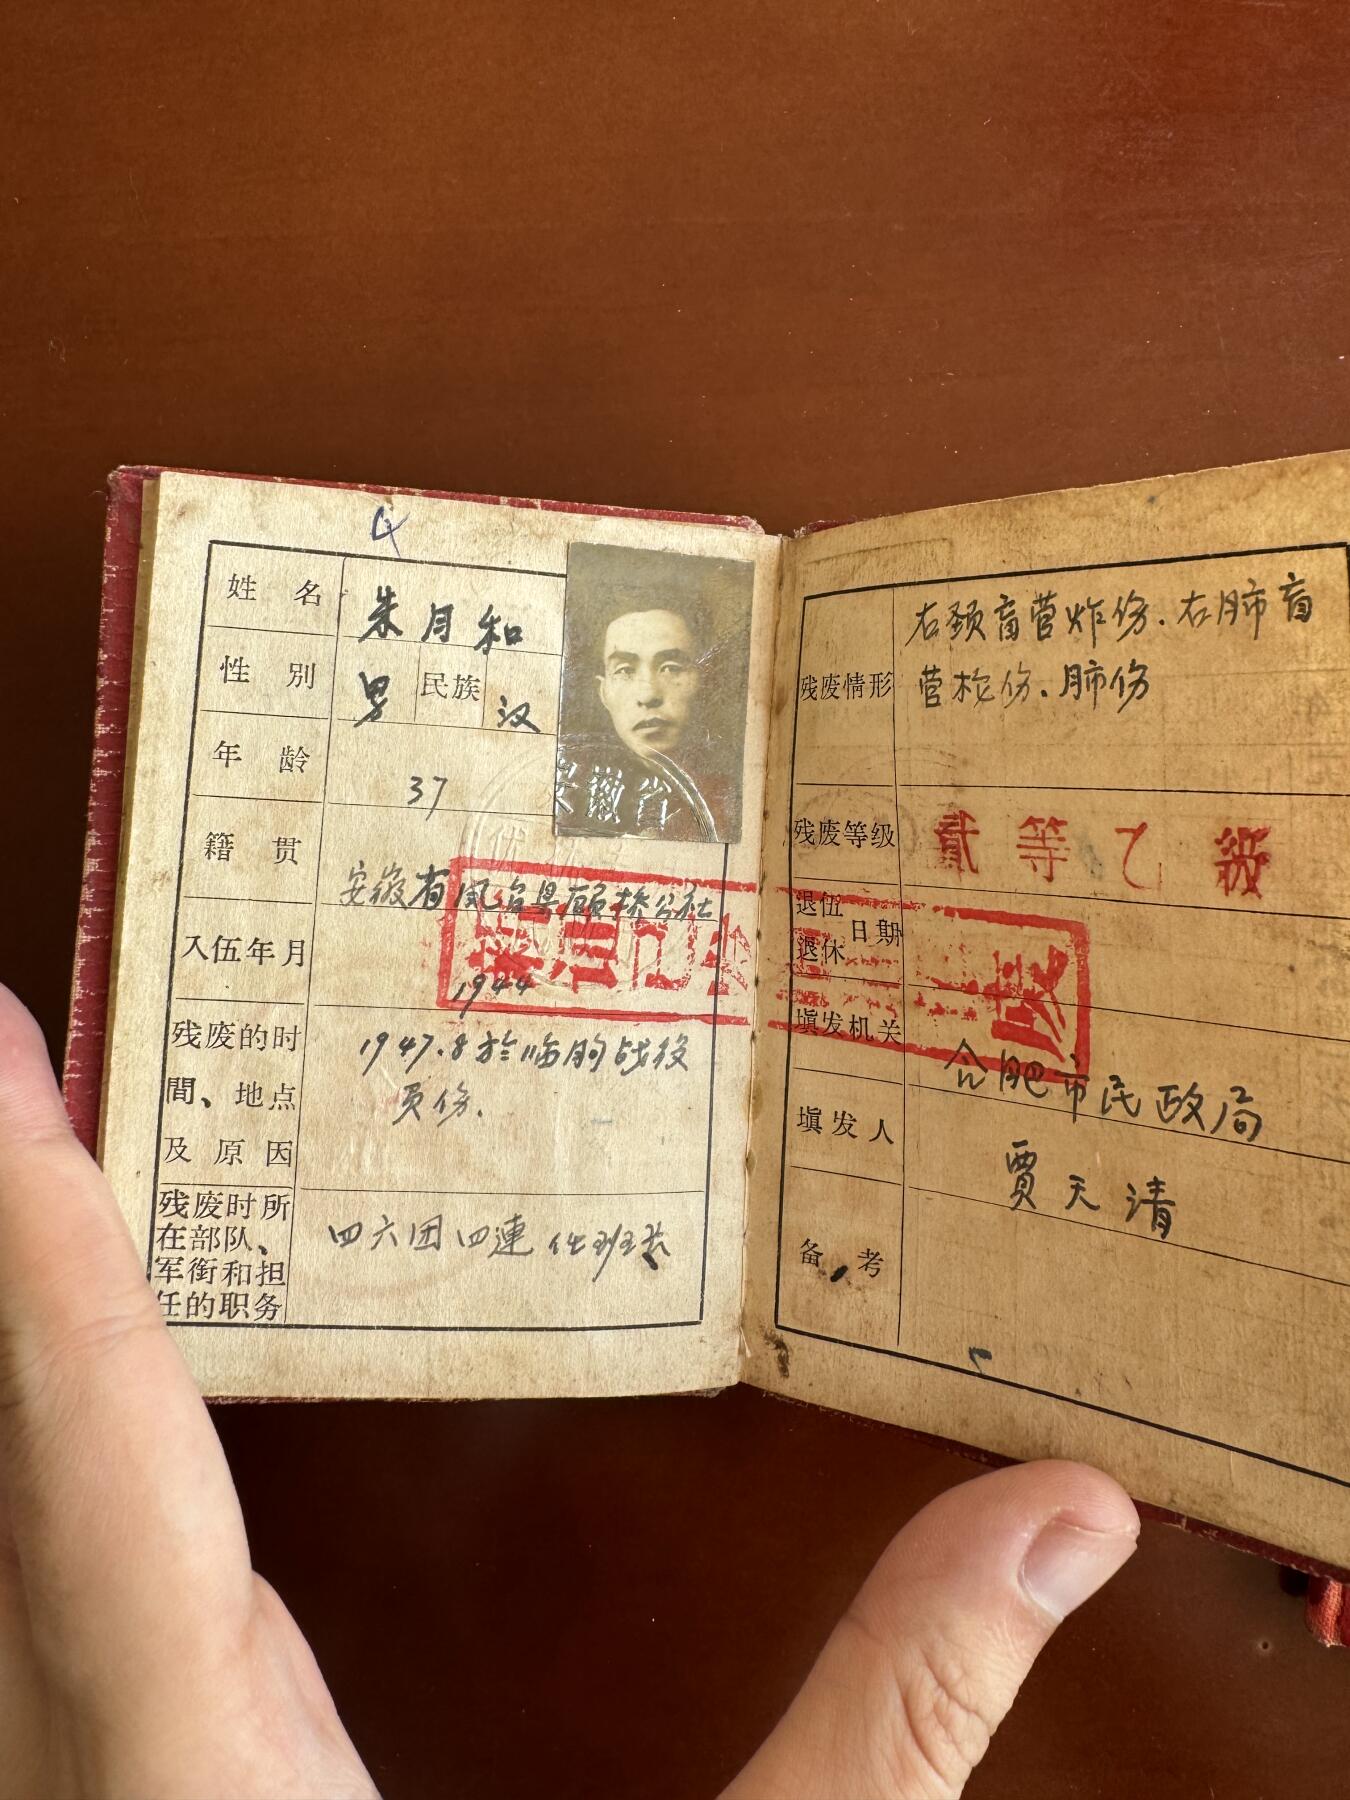 姓 名 朱月和
性 别 男 民族 汉
年 龄 37
籍 贯 安徽省凤台县顾桥公社
入伍年月 1944
残废的时
間、地点
及原因
1947.8於临朐战役
负伤.
残废时所
在部队、
军衔和担
任的职务
四六团四連 任班长
安徽省
残废情形
右颈盲管炸伤.右肺盲
管枪伤.肺伤
残废等级 貳等乙級
退伍
退休
日期
填发机关 合肥市民政局
填发人 贾天清
备 考